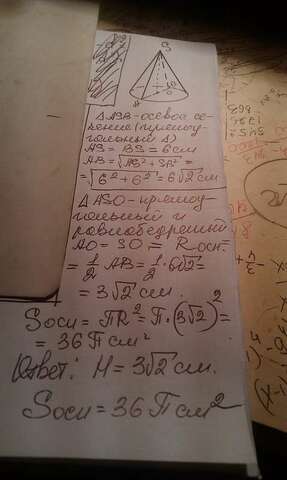 S
A
O
B
Δ ASB - осевое се-
чение (прямоу-
гольный Δ)
AS = BS = 6 см
AB = √AS² + SB² =
= √6² + 6² = 6√2 см
Δ ASO - прямоу-
гольный и
равнобедренный
AO = SO = Rосн =
= 1/2 AB = 1/2 · 6√2 =
= 3√2 см.
Sосн = ПR² = П · (3√2)² =
= 36 П см²
Ответ: H = 3√2 см.
Sосн = 36 П см²